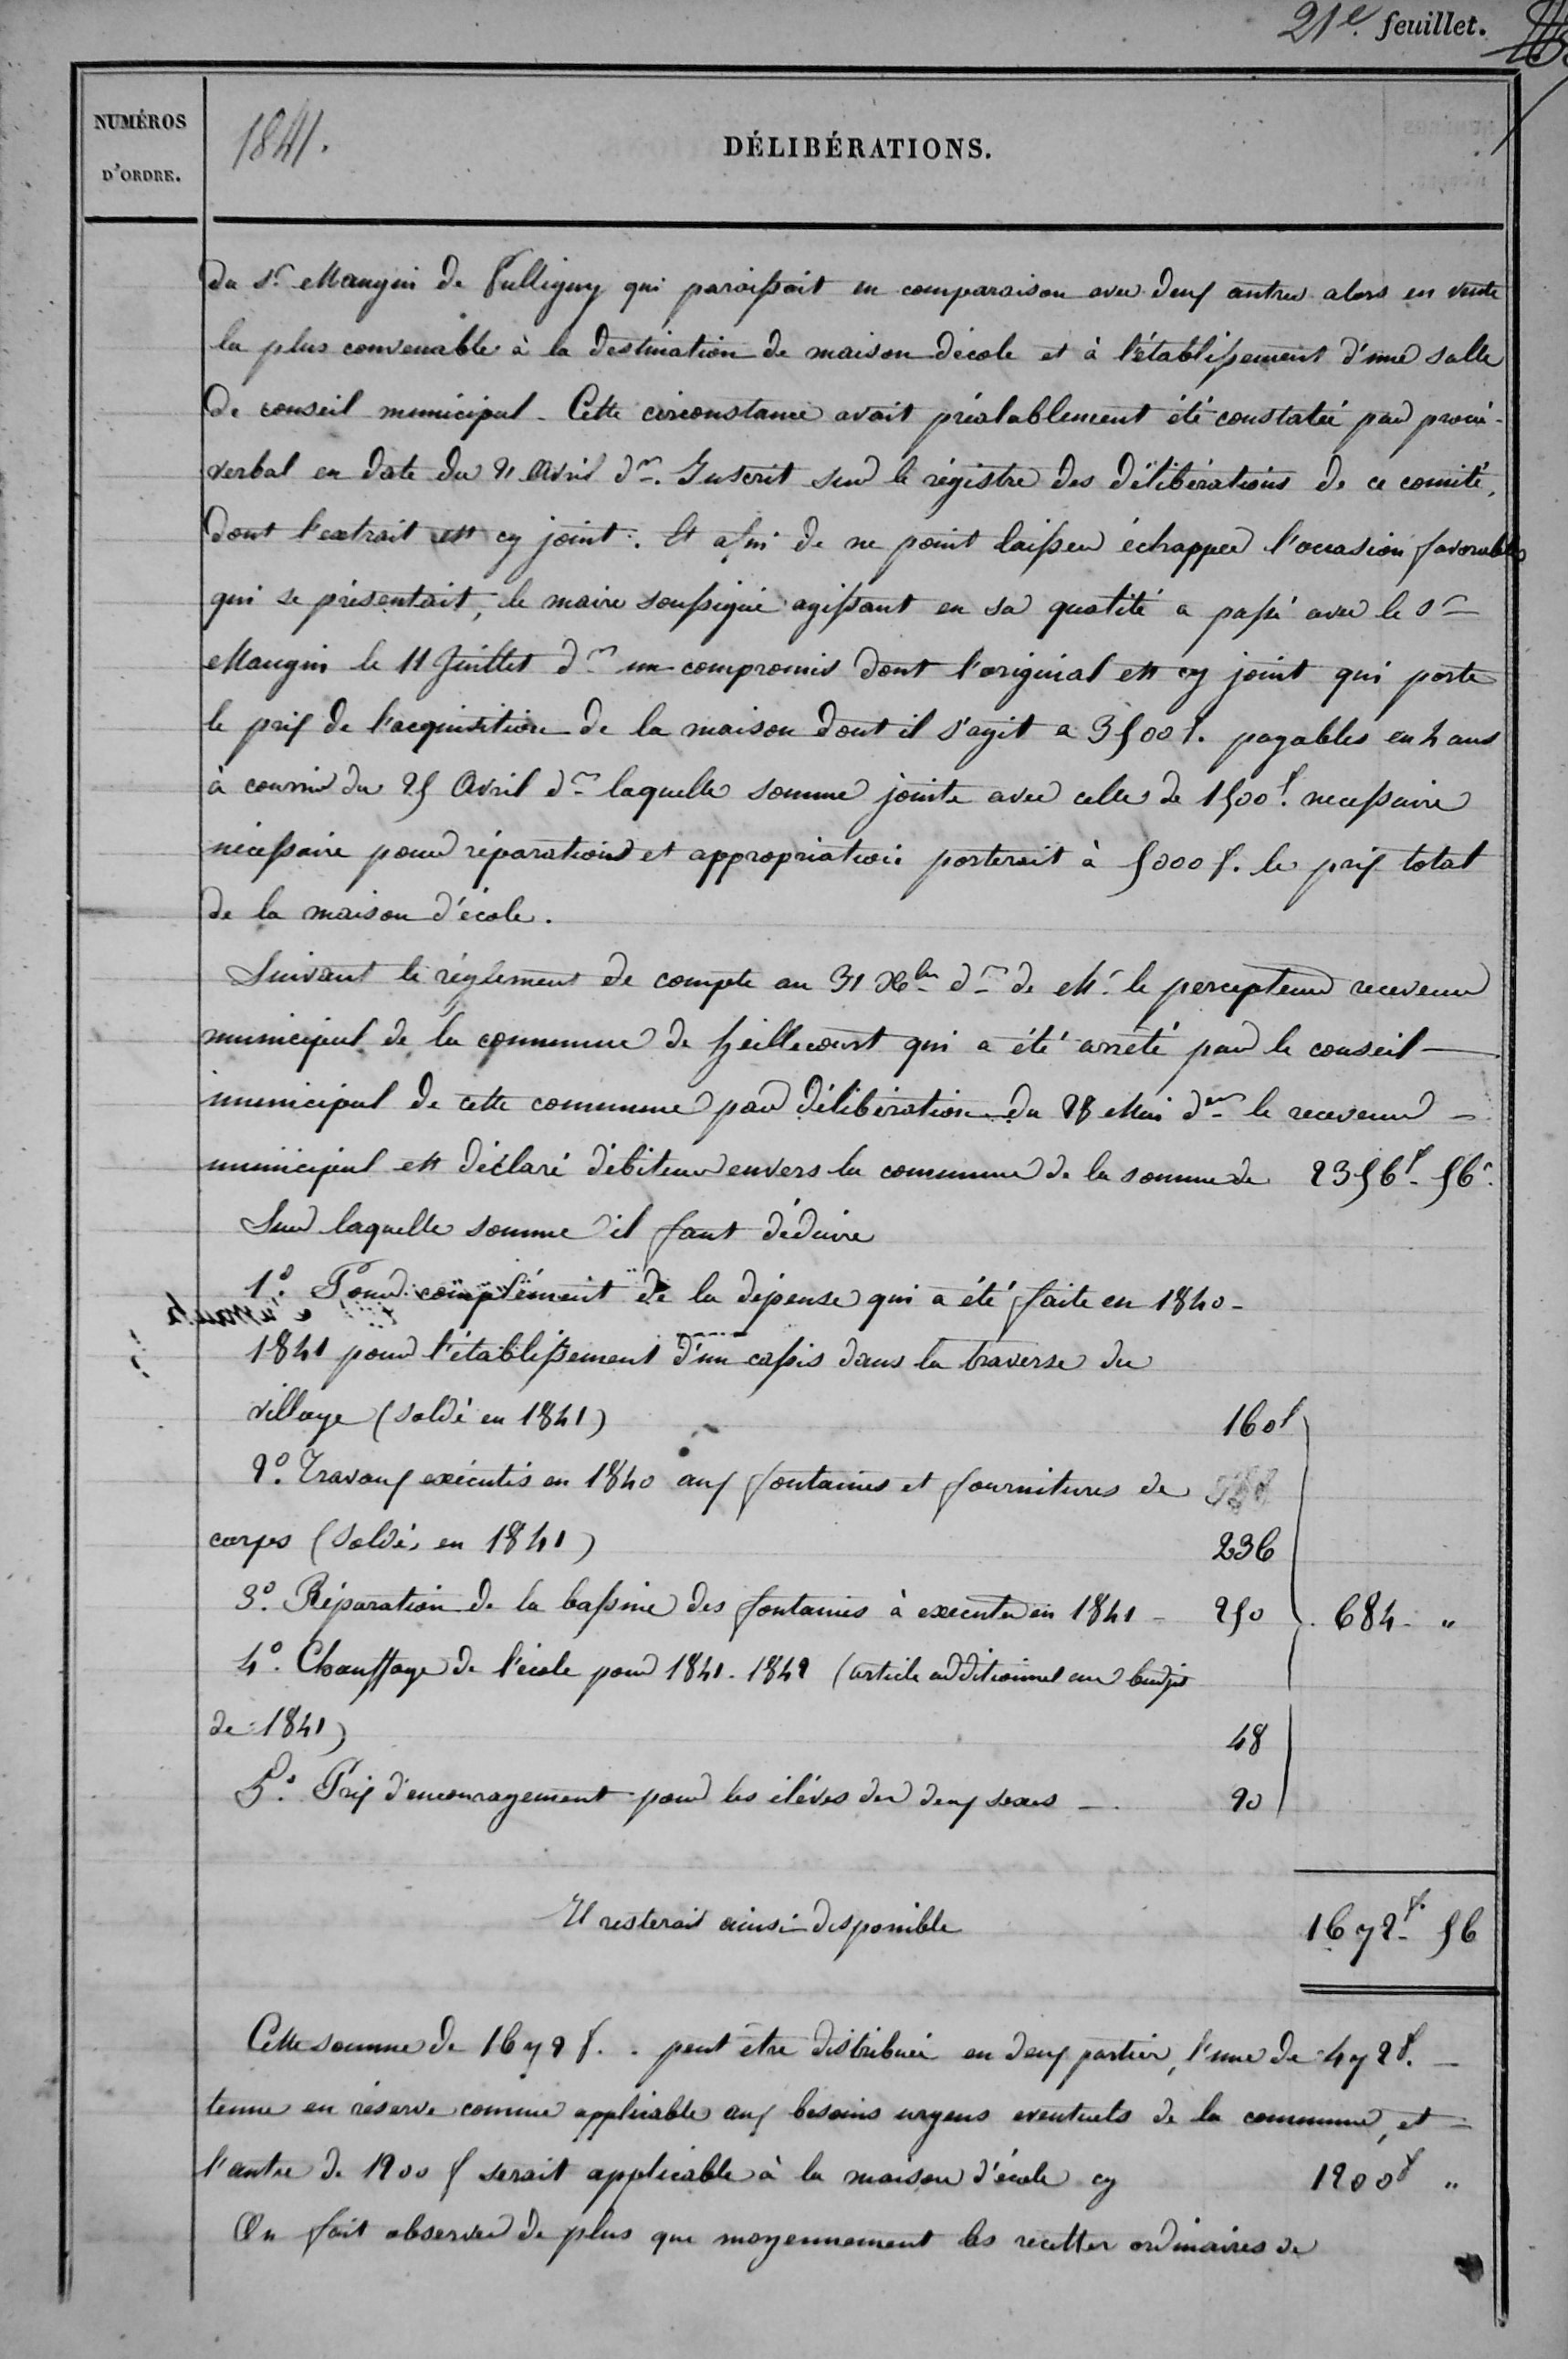 21e. feuillet.
NUMÉROS
D'ORDRE.
1841.
DÉLIBÉRATIONS.
du Sr. Mangin de Pulligny qui paroissait en comparaison avec deux autres alors en vente
la plus convenable à la destination de maison d'école et à l'établissement d'une salle
de conseil municipal. Cette circonstance avait préalablement été constatée par procé-
verbal en date du 21 Avril dr. Inscrit sur le régistre des délibérations de ce comité,
dont l'extrait est cy joint. Et afin de ne point laisser échapper l'occasion favorable
qui se présentait, le maire soussigné agissant en sa qualité a passé avec le Sr
Mangin le 11 Juillet dr un compromis dont l'original est cy joint qui porte
le prix de l'acquisition de la maison dont il s'agit a 3500 f. payables en 4 ans
à courir du 25 Avril dr laquelle somme jointe avec celle de 1500 f. necessaire
nécessaire pour réparations et appropriation porterait à 5000 f. le prix total
de la maison d'école.
Suivant le réglement de compte au 31 Xbre dr de Mr. le percepteur receveur
municipal de la commune de heillecourt qui a été arrêté par le conseil
municipal de cette commune par délibération du 28 Mai dr le receveur
municipal est déclaré débiteur envers la commune de la somme de 2356f. 56c.
Sur laquelle somme il faut déduire
1°. Pour complément de la dépense qui a été faite en 1840-
1841 pour l'établissement d'un cassis dans la traverse du
village (soldé en 1841) 160f
2°. Travaux exécutés en 1840 aux fontaines et fournitures de
corps (soldés en 1841) 236
3°. Réparation de la bassine des fontaines à executer en 1841 - 250 684 - "
4°. Chauffage de l'école pour 1841-1842 (article additionnel au budjet
de 1841) 48
5°. Prix d'encouragement pour les élèves des deux sexes - 20
Il resterait ainsi disponible 1672f. 56
Cette somme de 1672 f. peut être distribuée en deux parties, l'une de 472f.
tenue en réserve comme applicable aux besoins urgens eventuels de la commune, et
l'autre de 1200 f serait applicable à la maison d'école cy 1200f "
On fait observer de plus que moyennement les recettes ordinaires de